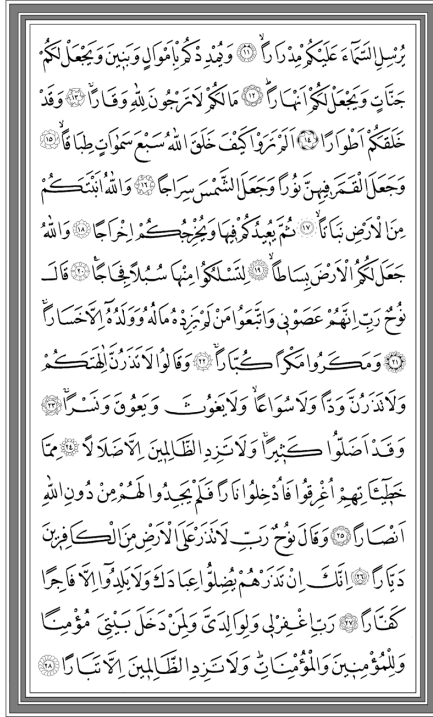 يُرْسِلِ السَّمَٓاءَ عَلَيْكُمْ مِدْرَارًاۙ ﴿١١﴾ وَيُمْدِدْكُمْ بِاَمْوَالٍ وَبَن۪ينَ وَيَجْعَلْ لَكُمْ
جَنَّاتٍ وَيَجْعَلْ لَكُمْ اَنْهَارًاۜ ﴿١٢﴾ مَا لَكُمْ لَا تَرْجُونَ لِلّٰهِ وَقَارًاۚ ﴿١٣﴾ وَقَدْ
خَلَقَكُمْ اَطْوَارًا ﴿١٤﴾ اَلَمْ تَرَوْا كَيْفَ خَلَقَ اللّٰهُ سَبْعَ سَمٰوَاتٍ طِبَاقًاۙ ﴿١٥﴾
وَجَعَلَ الْقَمَرَ ف۪يهِنَّ نُورًا وَجَعَلَ الشَّمْسَ سِرَاجًا ﴿١٦﴾ وَاللّٰهُ اَنْبَتَكُمْ
مِنَ الْاَرْضِ نَبَاتًاۙ ﴿١٧﴾ ثُمَّ يُع۪يدُكُمْ ف۪يهَا وَيُخْرِجُكُمْ اِخْرَاجًا ﴿١٨﴾ وَاللّٰهُ
جَعَلَ لَكُمُ الْاَرْضَ بِسَاطًاۙ ﴿١٩﴾ لِتَسْلُكُوا مِنْهَا سُبُلًا فِجَاجًا۟ ﴿٢٠﴾ قَالَ
نُوحٌ رَبِّ اِنَّهُمْ عَصَوْن۪ي وَاتَّبَعُوا مَنْ لَمْ يَزِدْهُ مَالُهُ وَوَلَدُهُٓ اِلَّا خَسَارًاۚ
﴿٢١﴾ وَمَكَرُوا مَكْرًا كُبَّارًاۚ ﴿٢٢﴾ وَقَالُوا لَا تَذَرُنَّ اٰلِهَتَكُمْ
وَلَا تَذَرُنَّ وَدًّا وَلَا سُوَاعًاۙ وَلَا يَغُوثَ وَيَعُوقَ وَنَسْرًاۚ ﴿٢٣﴾
وَقَدْ اَضَلُّوا كَث۪يرًاۚ وَلَا تَزِدِ الظَّالِم۪ينَ اِلَّا ضَلَالًا ﴿٢٤﴾ مِمَّا
خَط۪ٓيـَٔاتِهِمْ اُغْرِقُوا فَاُدْخِلُوا نَارًا فَلَمْ يَجِدُوا لَهُمْ مِنْ دُونِ اللّٰهِ
اَنْصَارًا ﴿٢٥﴾ وَقَالَ نُوحٌ رَبِّ لَا تَذَرْ عَلَى الْاَرْضِ مِنَ الْكَافِر۪ينَ
دَيَّارًا ﴿٢٦﴾ اِنَّكَ اِنْ تَذَرْهُمْ يُضِلُّوا عِبَادَكَ وَلَا يَلِدُٓوا اِلَّا فَاجِرًا
كَفَّارًا ﴿٢٧﴾ رَبِّ اغْفِرْ ل۪ي وَلِوَالِدَيَّ وَلِمَنْ دَخَلَ بَيْتِيَ مُؤْمِنًا
وَلِلْمُؤْمِن۪ينَ وَالْمُؤْمِنَاتِۜ وَلَا تَزِدِ الظَّالِم۪ينَ اِلَّا تَبَارًا ﴿٢٨﴾